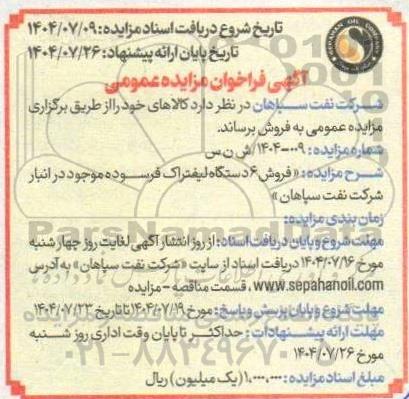 SEPAHAN OIL COMPANY
تاریخ شروع دریافت اسناد مزایده: ۱۴۰۴/۰۷/۰۹
تاریخ پایان ارائه پیشنهاد: ۱۴۰۴/۰۷/۲۶
آگهی فراخوان مزایده عمومی
شرکت نفت سپاهان در نظر دارد کالاهای خود را از طریق برگزاری
مزایده عمومی به فروش برساند.
شماره مزایده: ۱۴۰۴-۰۰۹/ش ن س
شرح مزایده: «فروش ۶ دستگاه لیفتراک فرسوده موجود در انبار
شرکت نفت سپاهان»
زمان بندی مزایده:
مهلت شروع و پایان دریافت اسناد: از روز انتشار آگهی لغایت روز چهار شنبه
مورخ ۱۴۰۴/۰۷/۱۶ دریافت اسناد از سایت «شرکت نفت سپاهان» به آدرس
www.sepahanoil.com ، قسمت مناقصه - مزایده
مهلت شروع و پایان پرسش و پاسخ: مورخ ۱۴۰۴/۰۷/۱۹ تا تاریخ ۱۴۰۴/۰۷/۲۳
مهلت ارائه پیشنهادات: حداکثر تا پایان وقت اداری روز شنبه
مورخ ۱۴۰۴/۰۷/۲۶
مبلغ اسناد مزایده: ۱،۰۰۰،۰۰۰ (یک میلیون) ریال
ParsNamadData